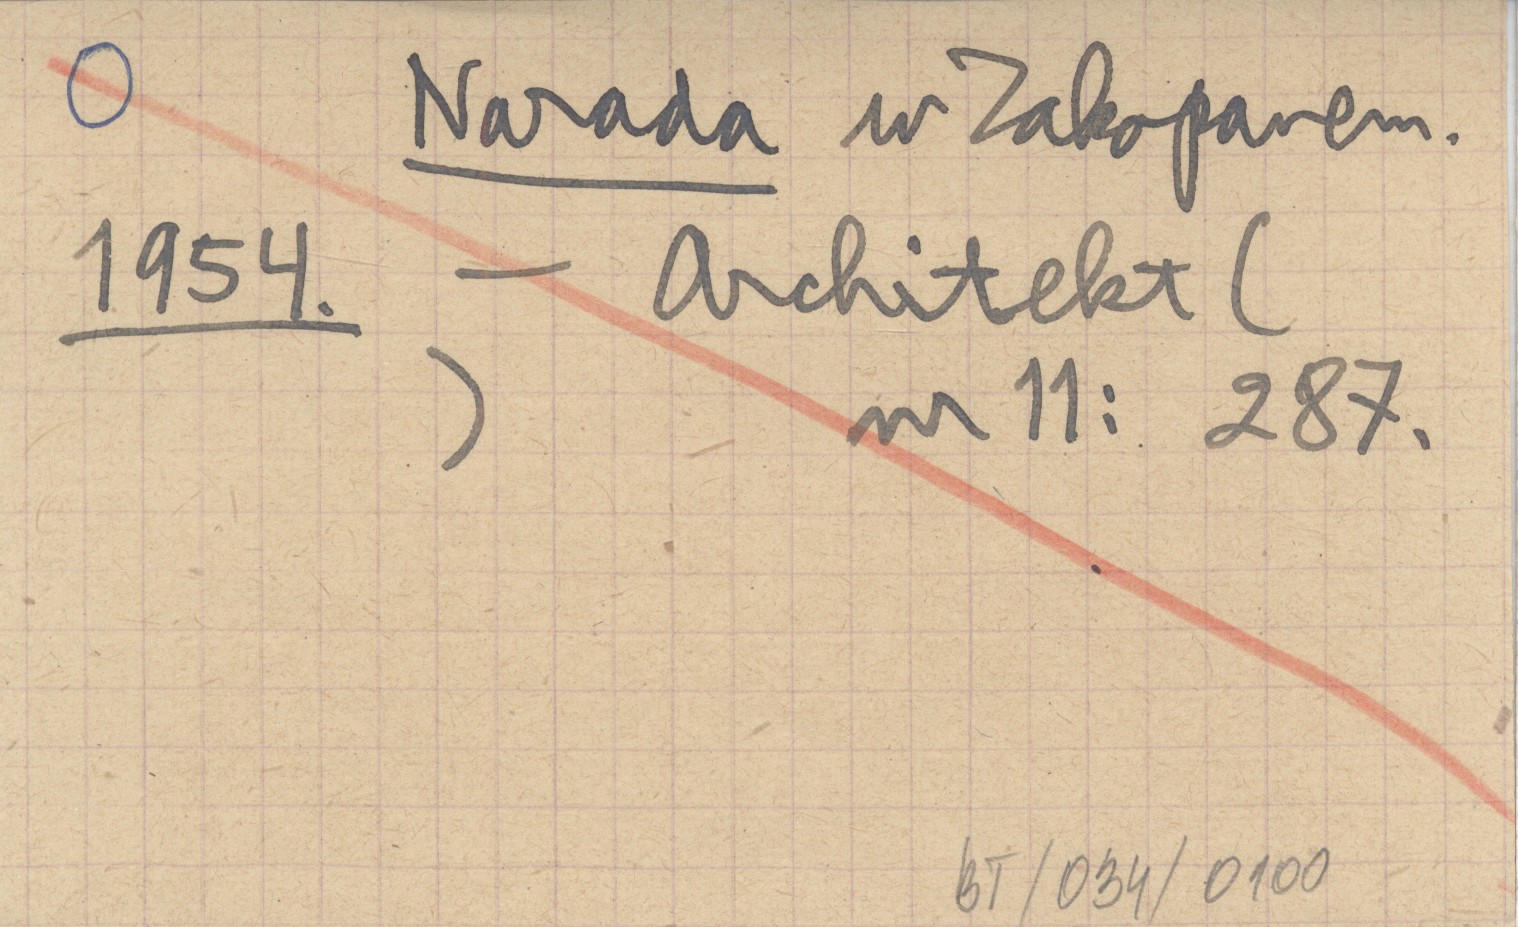 O Narada w Zakopanem.
1954. — Architekt (
) nr 11: 287.
BT/034/0100